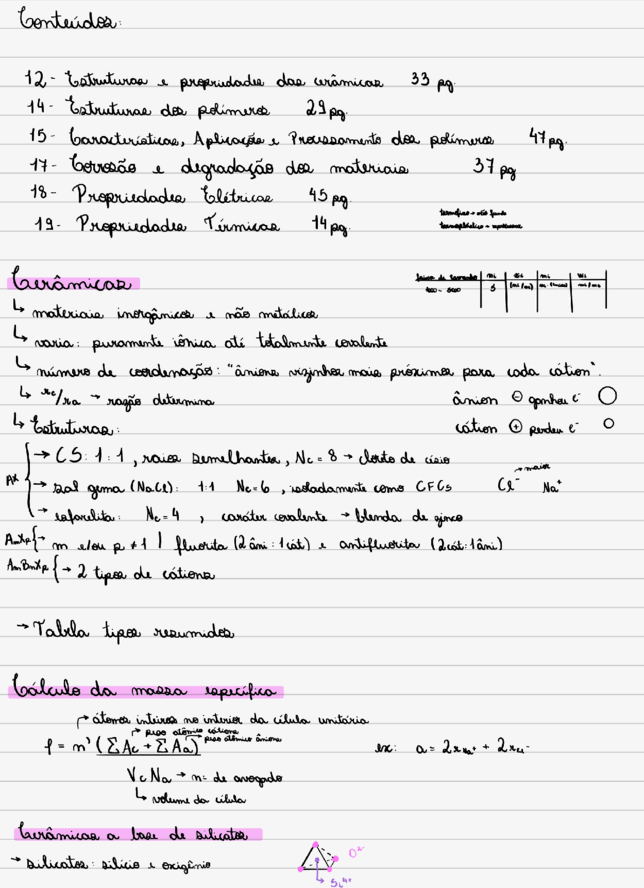 Conteúdos:
12 - Estruturas e propriedades das cerâmicas 33 pg.
14 - Estruturas dos polímeros 29 pg.
15 - Características, Aplicação e Processamento dos polímeros 47 pg.
17 - Corrosão e degradação dos materiais 37 pg
18 - Propriedades Elétricas 45 pg.
19 - Propriedades Térmicas 14 pg.
termofixo → não funde
termoplástico →
Cerâmicas
400 - 500 5
↳ materiais inorgânicos e não metálicos
↳ varia: puramente iônica até totalmente covalente
↳ número de coordenação: "ânions vizinhos mais próximos para cada cátion".
↳ rc/ra → razão determina ânion ⊖ ganhou e⁻
↳ Estruturas: cátion ⊕ perdeu e⁻
AX → CS: 1:1, raios semelhantes, Nc = 8 → cloreto de césio
→ sal gema (NaCl): 1:1 Nc = 6, isoladamente como CFCs Cl⁻ → maior Na⁺
→ esfarelita: Nc = 4, caráter covalente → blenda de zinco
AmXp → m e/ou p ≠ 1 | fluorita (2 âni : 1 cát) e antifluorita (2 cát : 1 âni)
AmBnXp → 2 tipos de cátions
→ Tabela tipos resumidos
Cálculo da massa específica
→ átomos inteiros no interior da célula unitária
→ peso atômico cátions
→ peso atômico ânions
ρ = n' (ΣAc + ΣAa) ex: a = 2rNa⁺ + 2rCl⁻
Vc Na → n: de avogado
↳ volume da célula
Cerâmicas a base de silicatos
→ silicatos: silício e oxigênio
O²⁻
Si⁴⁺